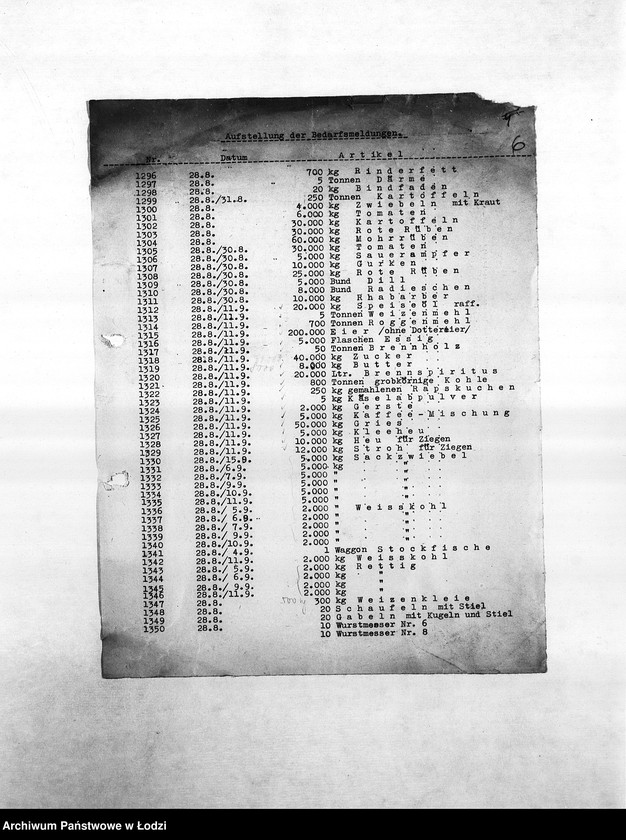 6
Aufstellung der Bedarfsmeldungen.
Nr. Datum Artikel
1296 28.8. 700 kg Rinderfett
1297 28.8. 5 Tonnen Därme
1298 28.8. 20 kg Bindfaden
1299 28.8./31.8. 250 Tonnen Kartoffeln
1300 28.8. 4.000 kg Zwiebeln mit Kraut
1301 28.8. 6.000 kg Tomaten
1302 28.8. 30.000 kg Kartoffeln
1303 28.8. 30.000 kg Rote Rüben
1304 28.8. 60.000 kg Mohrrüben
1305 28.8./30.8. 30.000 kg Tomaten
1306 28.8./30.8. 5.000 kg Sauerampfer
1307 28.8./30.8. 10.000 kg Gurken
1308 28.8./30.8. 25.000 kg Rote Rüben
1309 28.8./30.8. 5.000 Bund Dill
1310 28.8./30.8. 8.000 Bund Radieschen
1311 28.8./30.8. 10.000 kg Rhabarber
1312 28.8./11.9. 20.000 kg Speiseöl raff.
1313 28.8./11.9. 5 Tonnen Weizenmehl
1314 28.8./11.9. 700 Tonnen Roggenmehl
1315 28.8./11.9. 200.000 Eier /ohne Dottereier/
1316 28.8./11.9. 5.000 Flaschen Essig
1317 28.8./11.9. 50 Tonnen Brennholz
1318 28.8./11.9. 40.000 kg Zucker
1319 28.8./11.9. 8.000 kg Butter
1320 28.8./11.9. 20.000 Ltr. Brennspiritus
1321 28.8./11.9. 800 Tonnen grobkörnige Kohle
1322 28.8./11.9. 250 kg gemahlenen Rapskuchen
1323 28.8./11.9. 5 kg Käselabpulver
1324 28.8./11.9. 2.000 kg Gerste
1325 28.8./11.9. 5.000 kg Kaffee-Mischung
1326 28.8./11.9. 50.000 kg Gries
1327 28.8./11.9. 5.000 kg Kleeheu
1328 28.8./11.9. 10.000 kg Heu für Ziegen
1329 28.8./11.9. 12.000 kg Stroh für Ziegen
1330 28.8./15.9. 5.000 kg Sackzwiebel
1331 28.8./6.9. 5.000 kg "
1332 28.8./7.9. 5.000 " "
1333 28.8./9.9. 5.000 " "
1334 28.8./10.9. 5.000 " "
1335 28.8./11.9. 5.000 " "
1336 28.8./ 5.9. 2.000 " Weisskohl
1337 28.8./ 6.9. 2.000 " "
1338 28.8./ 7.9. 2.000 " "
1339 28.8./ 9.9. 2.000 " "
1340 28.8./10.9. 2.000 " "
1341 28.8./ 4.9. 1 Waggon Stockfische
1342 28.8./11.9. 2.000 kg Weisskohl
1343 28.8./ 5.9. 2.000 kg Rettig
1344 28.8./ 6.9. 2.000 kg "
1345 28.8./ 9.9. 2.000 kg "
1346 28.8./11.9. 2.000 kg "
1347 28.8. 300 kg Weizenkleie
1348 28.8. 20 Schaufeln mit Stiel
1349 28.8. 20 Gabeln mit Kugeln und Stiel
1350 28.8. 10 Wurstmesser Nr. 6
10 Wurstmesser Nr. 8
Archiwum Państwowe w Łodzi